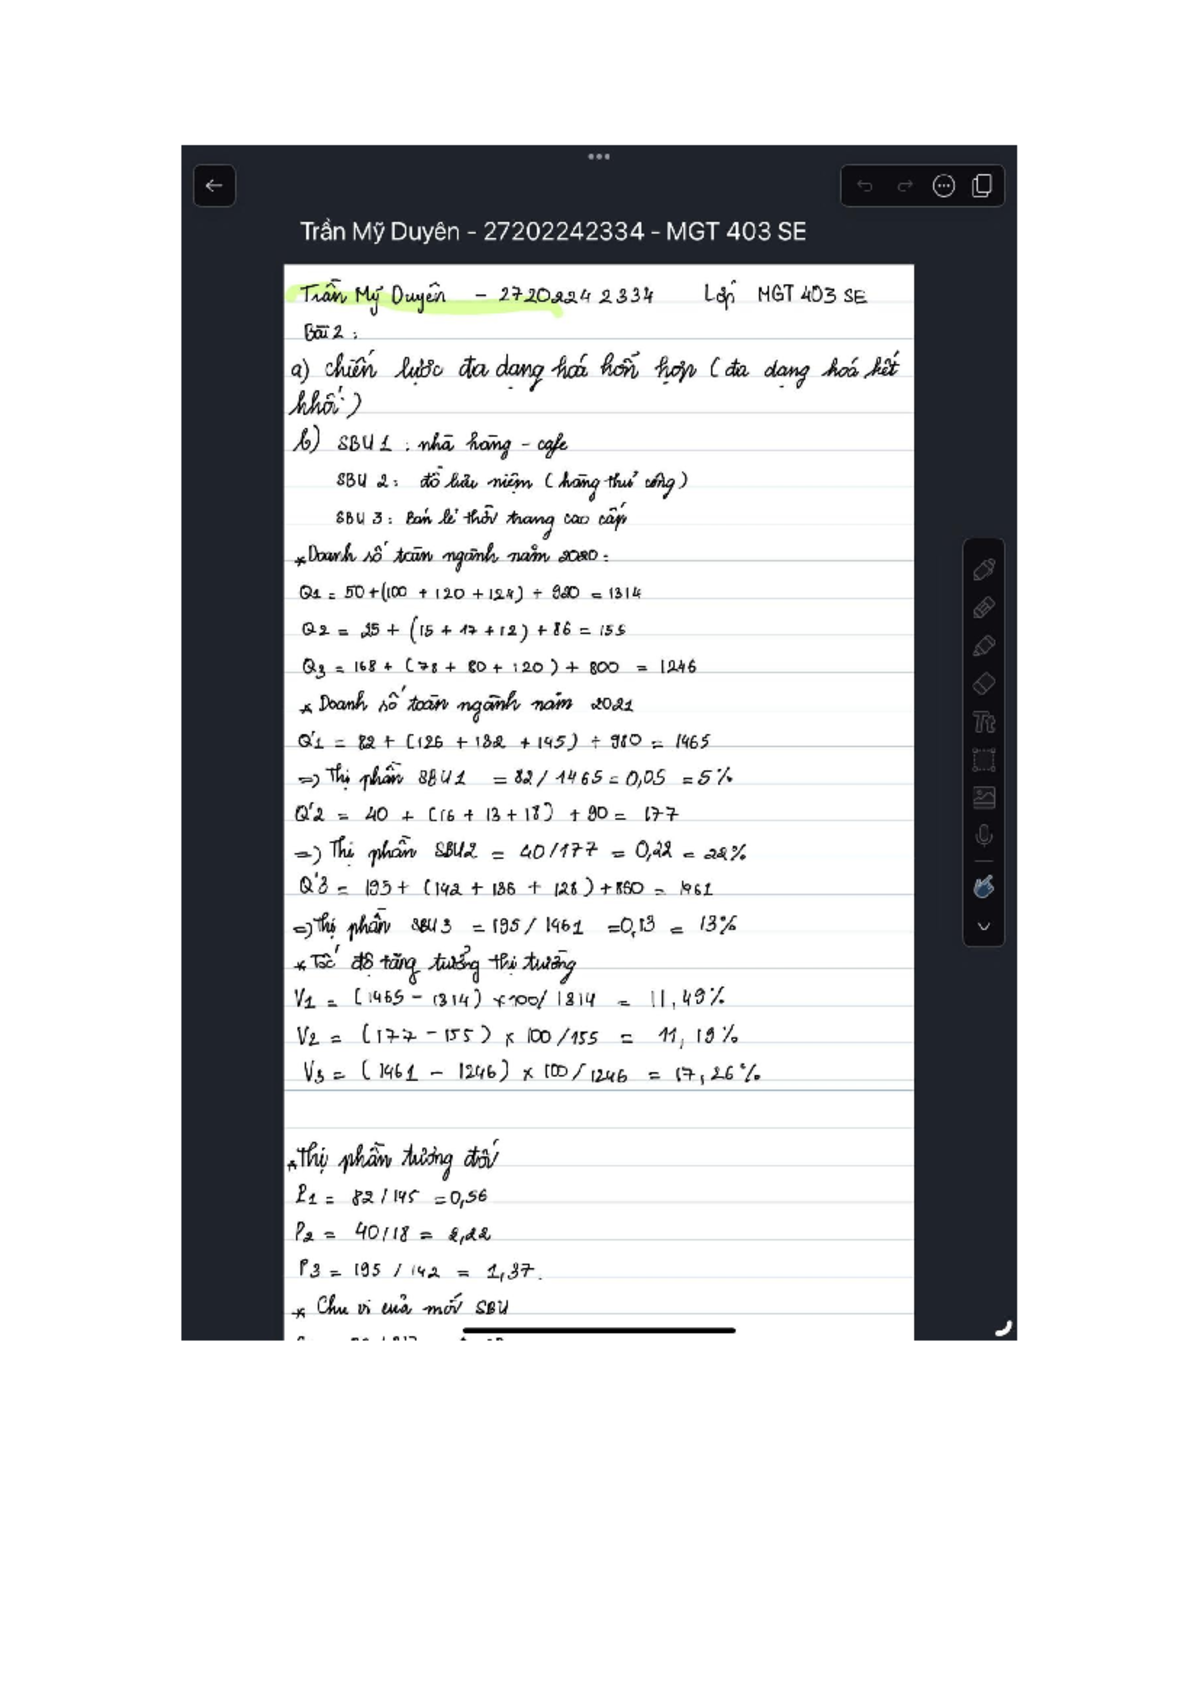 Trần Mỹ Duyên - 27202242334 - MGT 403 SE
Trần Mỹ Duyên - 27202242334 Lớp MGT 403 SE
Bài 2 :
a) chiến lược đa dạng hoá hỗn hợp ( đa dạng hoá kết
khối )
b) SBU 1 : nhà hàng - cafe
SBU 2 : đồ lưu niệm ( hàng thủ công )
SBU 3 : Bán lẻ thời trang cao cấp
* Doanh số toàn ngành năm 2020 :
Q1 = 50 + (100 + 120 + 124) + 920 = 1314
Q2 = 25 + (15 + 17 + 12) + 86 = 155
Q3 = 168 + (78 + 80 + 120) + 800 = 1246
* Doanh số toàn ngành năm 2021
Q'1 = 82 + (126 + 132 + 145) + 980 = 1465
=> Thị phần SBU1 = 82 / 1465 = 0,05 = 5%
Q'2 = 40 + (16 + 13 + 18) + 90 = 177
=> Thị phần SBU2 = 40/177 = 0,22 = 22%
Q'3 = 195 + (142 + 136 + 128) + 860 = 1461
=> Thị phần SBU3 = 195 / 1461 = 0,13 = 13%
* Tốc độ tăng trưởng thị trường
V1 = (1465 - 1314) x 100 / 1314 = 11,49%
V2 = (177 - 155) x 100 / 155 = 11,19%
V3 = (1461 - 1246) x 100 / 1246 = 17,26%
* Thị phần tương đối
P1 = 82 / 145 = 0,56
P2 = 40 / 18 = 2,22
P3 = 195 / 142 = 1,37.
* Chu vi của mỗi SBU